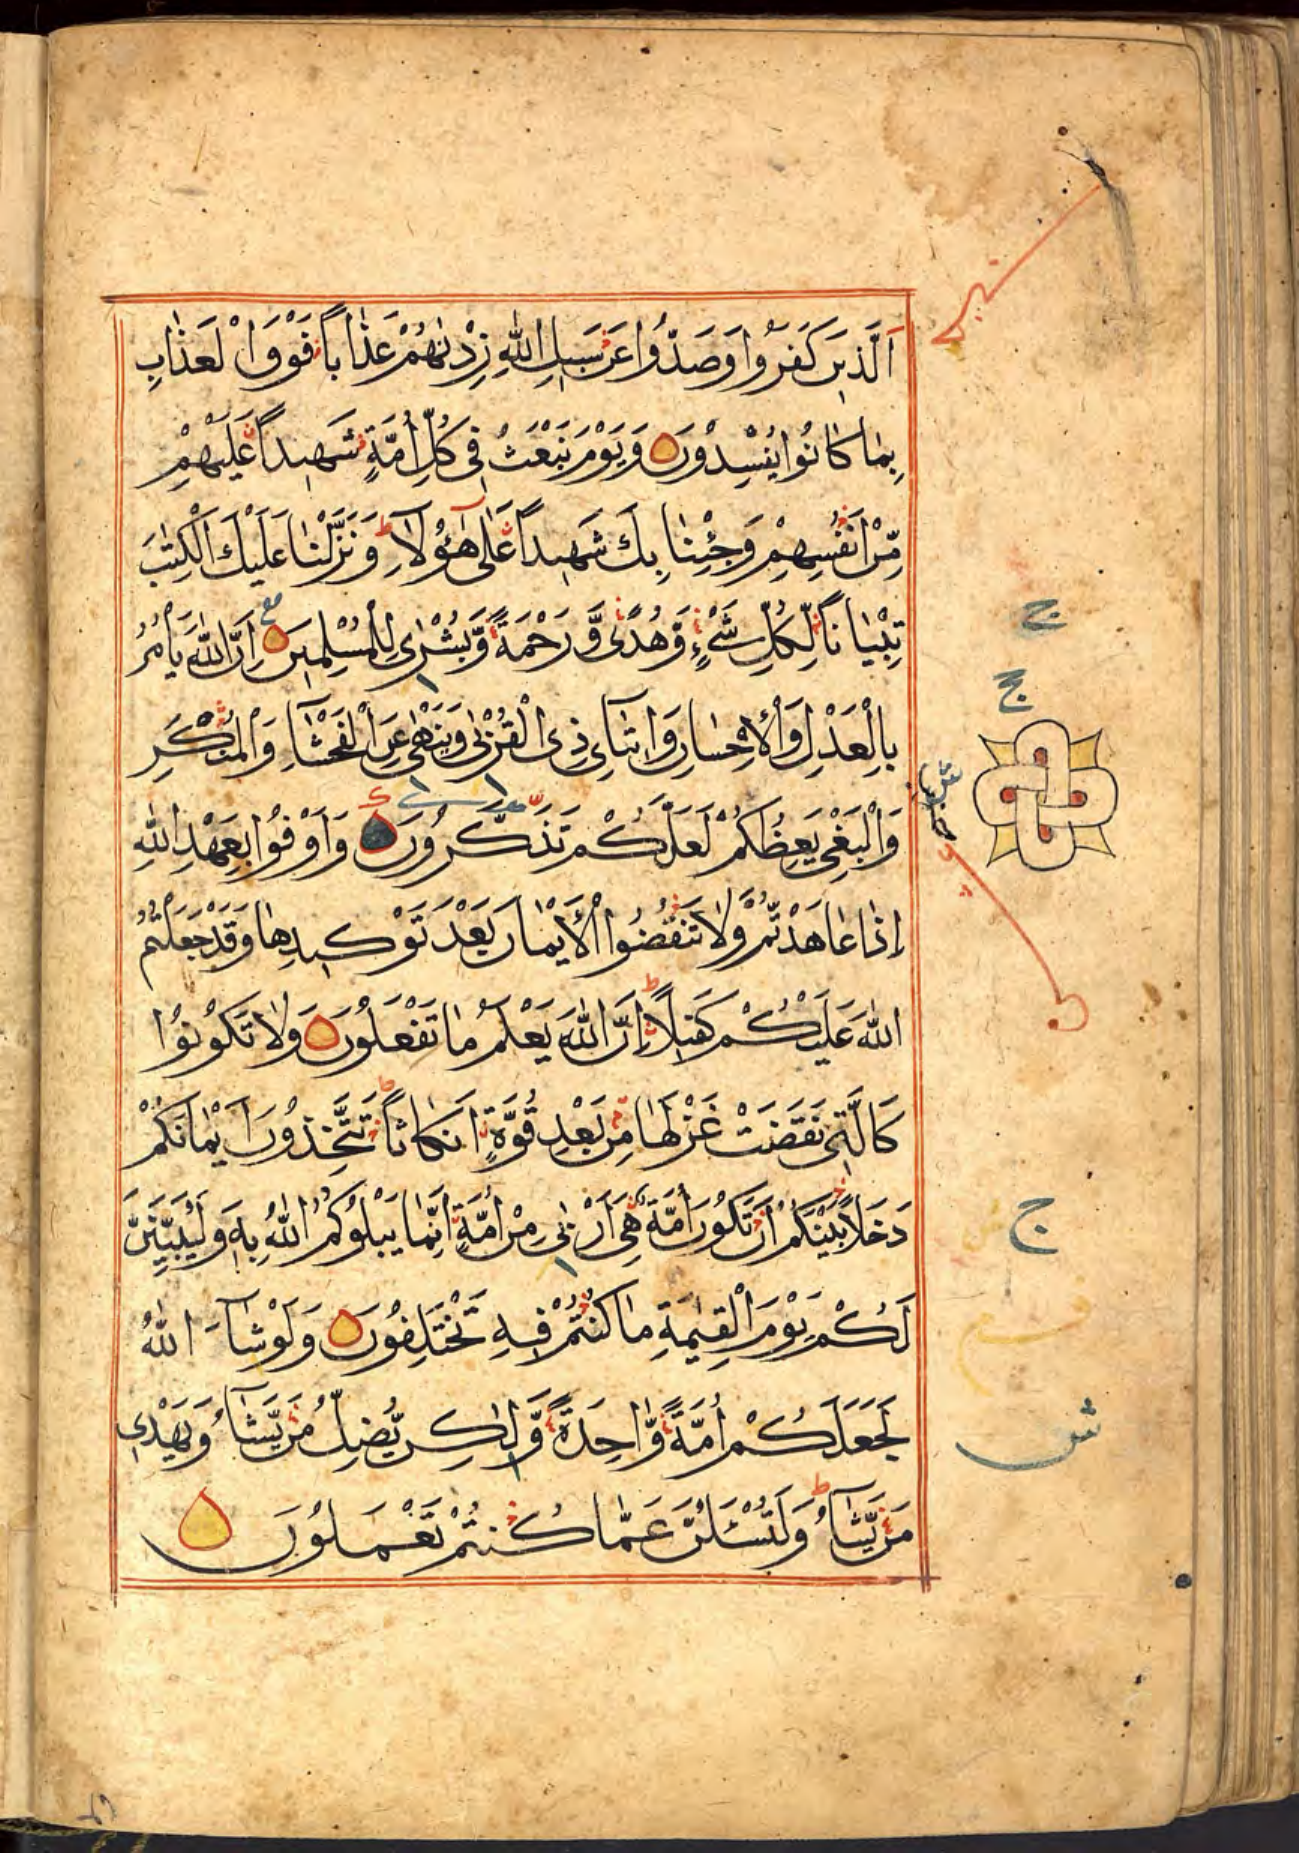 اَلَّذِينَ كَفَرُوا وَصَدُّوا عَن سَبِيلِ اللهِ زِدْنٰهُمْ عَذَاباً فَوْقَ الْعَذَابِ
بِمَا كَانُوا يُفْسِدُونَ وَيَوْمَ نَبْعَثُ فِى كُلِّ اُمَّةٍ شَهِيداً عَلَيْهِمْ
مِّنْ اَنْفُسِهِمْ وَجِئْنَا بِكَ شَهِيداً عَلٰى هٰٓؤُلَآءِ ط وَنَزَّلْنَا عَلَيْكَ الْكِتٰبَ
تِبْيَاناً لِّكُلِّ شَيْءٍ وَّهُدًى وَّرَحْمَةً وَّبُشْرٰى لِلْمُسْلِمِينَ ع اِنَّ اللهَ يَاْمُرُ
بِالْعَدْلِ وَالْاِحْسَانِ وَاِيتَآئِ ذِى الْقُرْبٰى وَيَنْهٰى عَنِ الْفَحْشَآءِ وَالْمُنْكَرِ
وَالْبَغْىِ يَعِظُكُمْ لَعَلَّكُمْ تَذَكَّرُونَ وَاَوْفُوا بِعَهْدِ اللهِ
اِذَا عَاهَدْتُّمْ وَلَا تَنْقُضُوا الْاَيْمَانَ بَعْدَ تَوْكِيدِهَا وَقَدْ جَعَلْتُمُ
اللهَ عَلَيْكُمْ كَفِيلاً ط اِنَّ اللهَ يَعْلَمُ مَا تَفْعَلُونَ وَلَا تَكُونُوْا
كَالَّتِى نَقَضَتْ غَزْلَهَا مِنْ بَعْدِ قُوَّةٍ اَنْكَاثاً ط تَتَّخِذُونَ اَيْمَانَكُمْ
دَخَلاً بَيْنَكُمْ اَنْ تَكُونَ اُمَّةٌ هِىَ اَرْبٰى مِنْ اُمَّةٍ اِنَّمَا يَبْلُوكُمُ اللهُ بِهٖ وَلَيُبَيِّنَنَّ
لَكُمْ يَوْمَ الْقِيٰمَةِ مَا كُنْتُمْ فِيهِ تَخْتَلِفُونَ وَلَوْ شَآءَ اللهُ
لَجَعَلَكُمْ اُمَّةً وَّاحِدَةً وَّلٰكِن يُّضِلُّ مَن يَّشَآءُ وَيَهْدِى
مَن يَّشَآءُ ط وَلَتُسْئَلُنَّ عَمَّا كُنتُمْ تَعْمَلُونَ
ج
ج
ج
ش